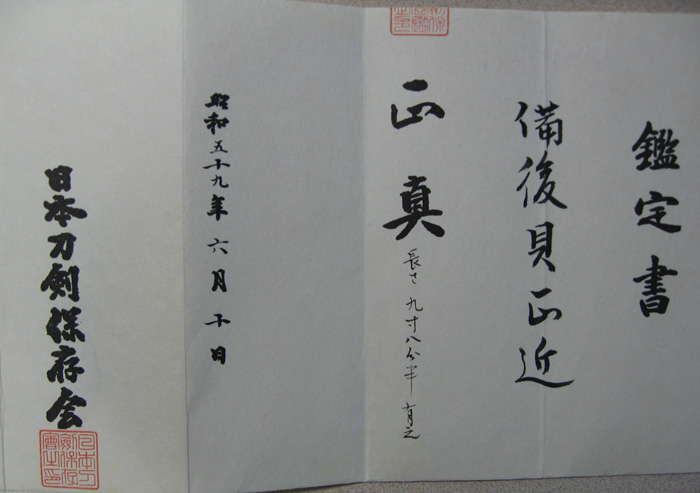 鑑定書
備後貝正近
正真
長さ九寸八分半有之
昭和五十九年六月十日
日本刀剣保存会